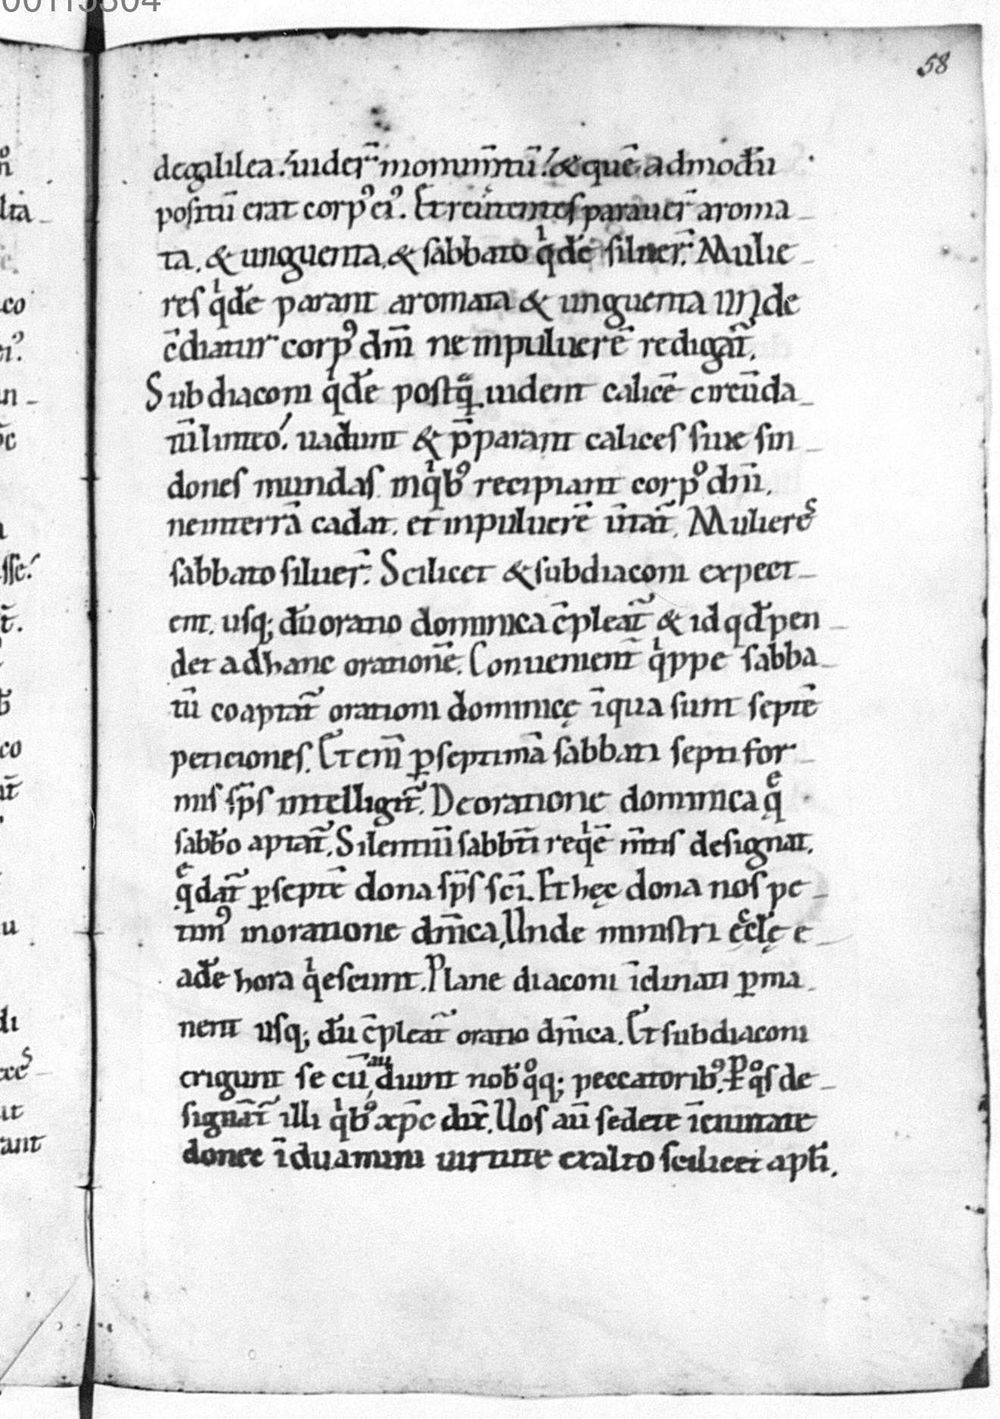 00115804
58
degalilea. uider̄ monum̄tū. & quē admodū
positū erat corp⁹ ei⁹. Et reuertentes parauer̄ aroma
ta. & unguenta. & sabbato qͥdē siluer̄. Mulie
res qͥdē parant aromata & unguenta Unde
c̄diatur corp⁹ dn̄i ne inpuluerē redigat̄.
Subdiaconi qͥdē postqͣ uident calicē circūda
tū linteo. uadunt & p̄parant calices siue sin
dones mundas inqͥb⁹ recipiant corp⁹ dn̄i.
ne interrā cadat. et inpuluerē ūtat̄. Mulieres
sabbato siluer̄. Scilicet & subdiaconi expect
ent. usq; dū oratio dominica c̄pleat̄ & id qd̄ pen
det adhanc orationē. Conuenient̄ qͥppe sabba
tū coaptat̄ orationi dominicę īqua sunt septē
peticiones. Et eni̅ ꝑseptimā sabbati septifor
mis sp̄s intelligit̄. De oratione dominica qͤ
sabb̄o aptat̄. Silentiū sabb̄ti reqͥē m̄tis designat.
qͤ dat̄ ꝑseptē dona sp̄s sc̄i. Et hęc dona nos pe
tim⁹ inoratione dn̄ica, Unde ministri ęccl̄ę e
adē hora qͥescunt. Plane diaconi īclinati ꝑma
nent usq; dū c̄pleat̄ oratio dn̄ica. Et subdiaconi
erigunt se cū audiunt nob̄ qͦq; peccatorib⁹. P̄ qͦs de
signat̄ illi qͥb⁹ xp̄c dix̄. Uos aū sedete īciuitate
donec īduamini uirtute exalto scilicet apl̄i.